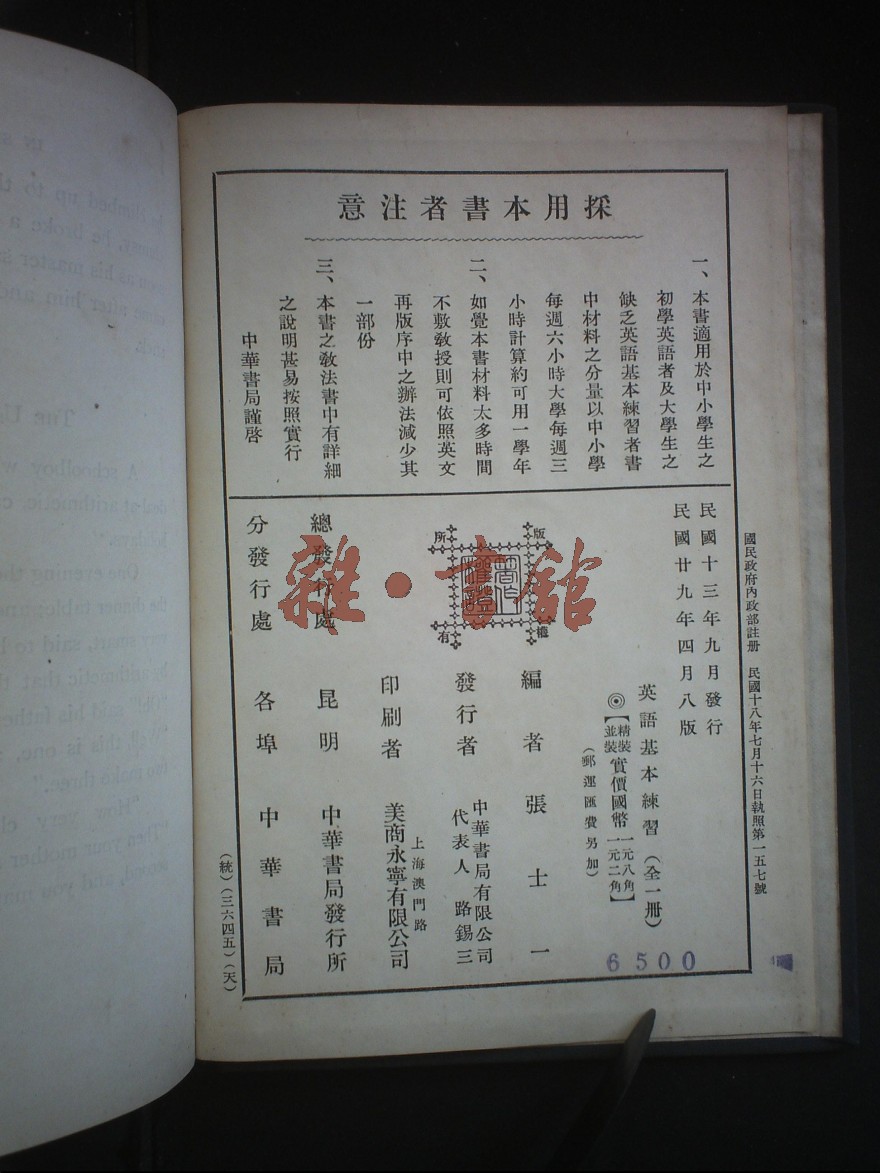 IN S
he climbed up to th
chimney, he broke a
soon as his master s
came after him and
THE U
A schoolboy w
deal at arithmetic, c
One evening the
very smart, said to h
the arithmetic that th
said his father
this is one,
two make three."
"How very cl
Then your mother
second, and you m
採用本書者注意
一、本書適用於中小學生之
初學英語者及大學生之
缺乏英語基本練習者書
中材料之分量以中小學
每週六小時大學每週三
小時計算約可用一學年
二、如覺本書材料太多時間
不敷教授則可依照英文
再版序中之辦法減少其
一部份
三、本書之教法書中有詳細
之說明甚易按照實行
中華書局謹啓
國民政府內政部註册 民國十八年七月十六日執照第一五七號
民國十三年九月發行
民國廿九年四月八版
英語基本練習(全一册)
◎【精裝 並裝 實價國幣 一元八角 一元二角】
(郵運匯費另加)
版權所有
著作權證
編者 張士一
發行者 中華書局有限公司
代表人 路錫三
印刷者 上海澳門路
美商永寧有限公司
總發行處 昆明 中華書局發行所
分發行處 各埠中華書局
(統)(三六四五)(天)
6500
雜·書館